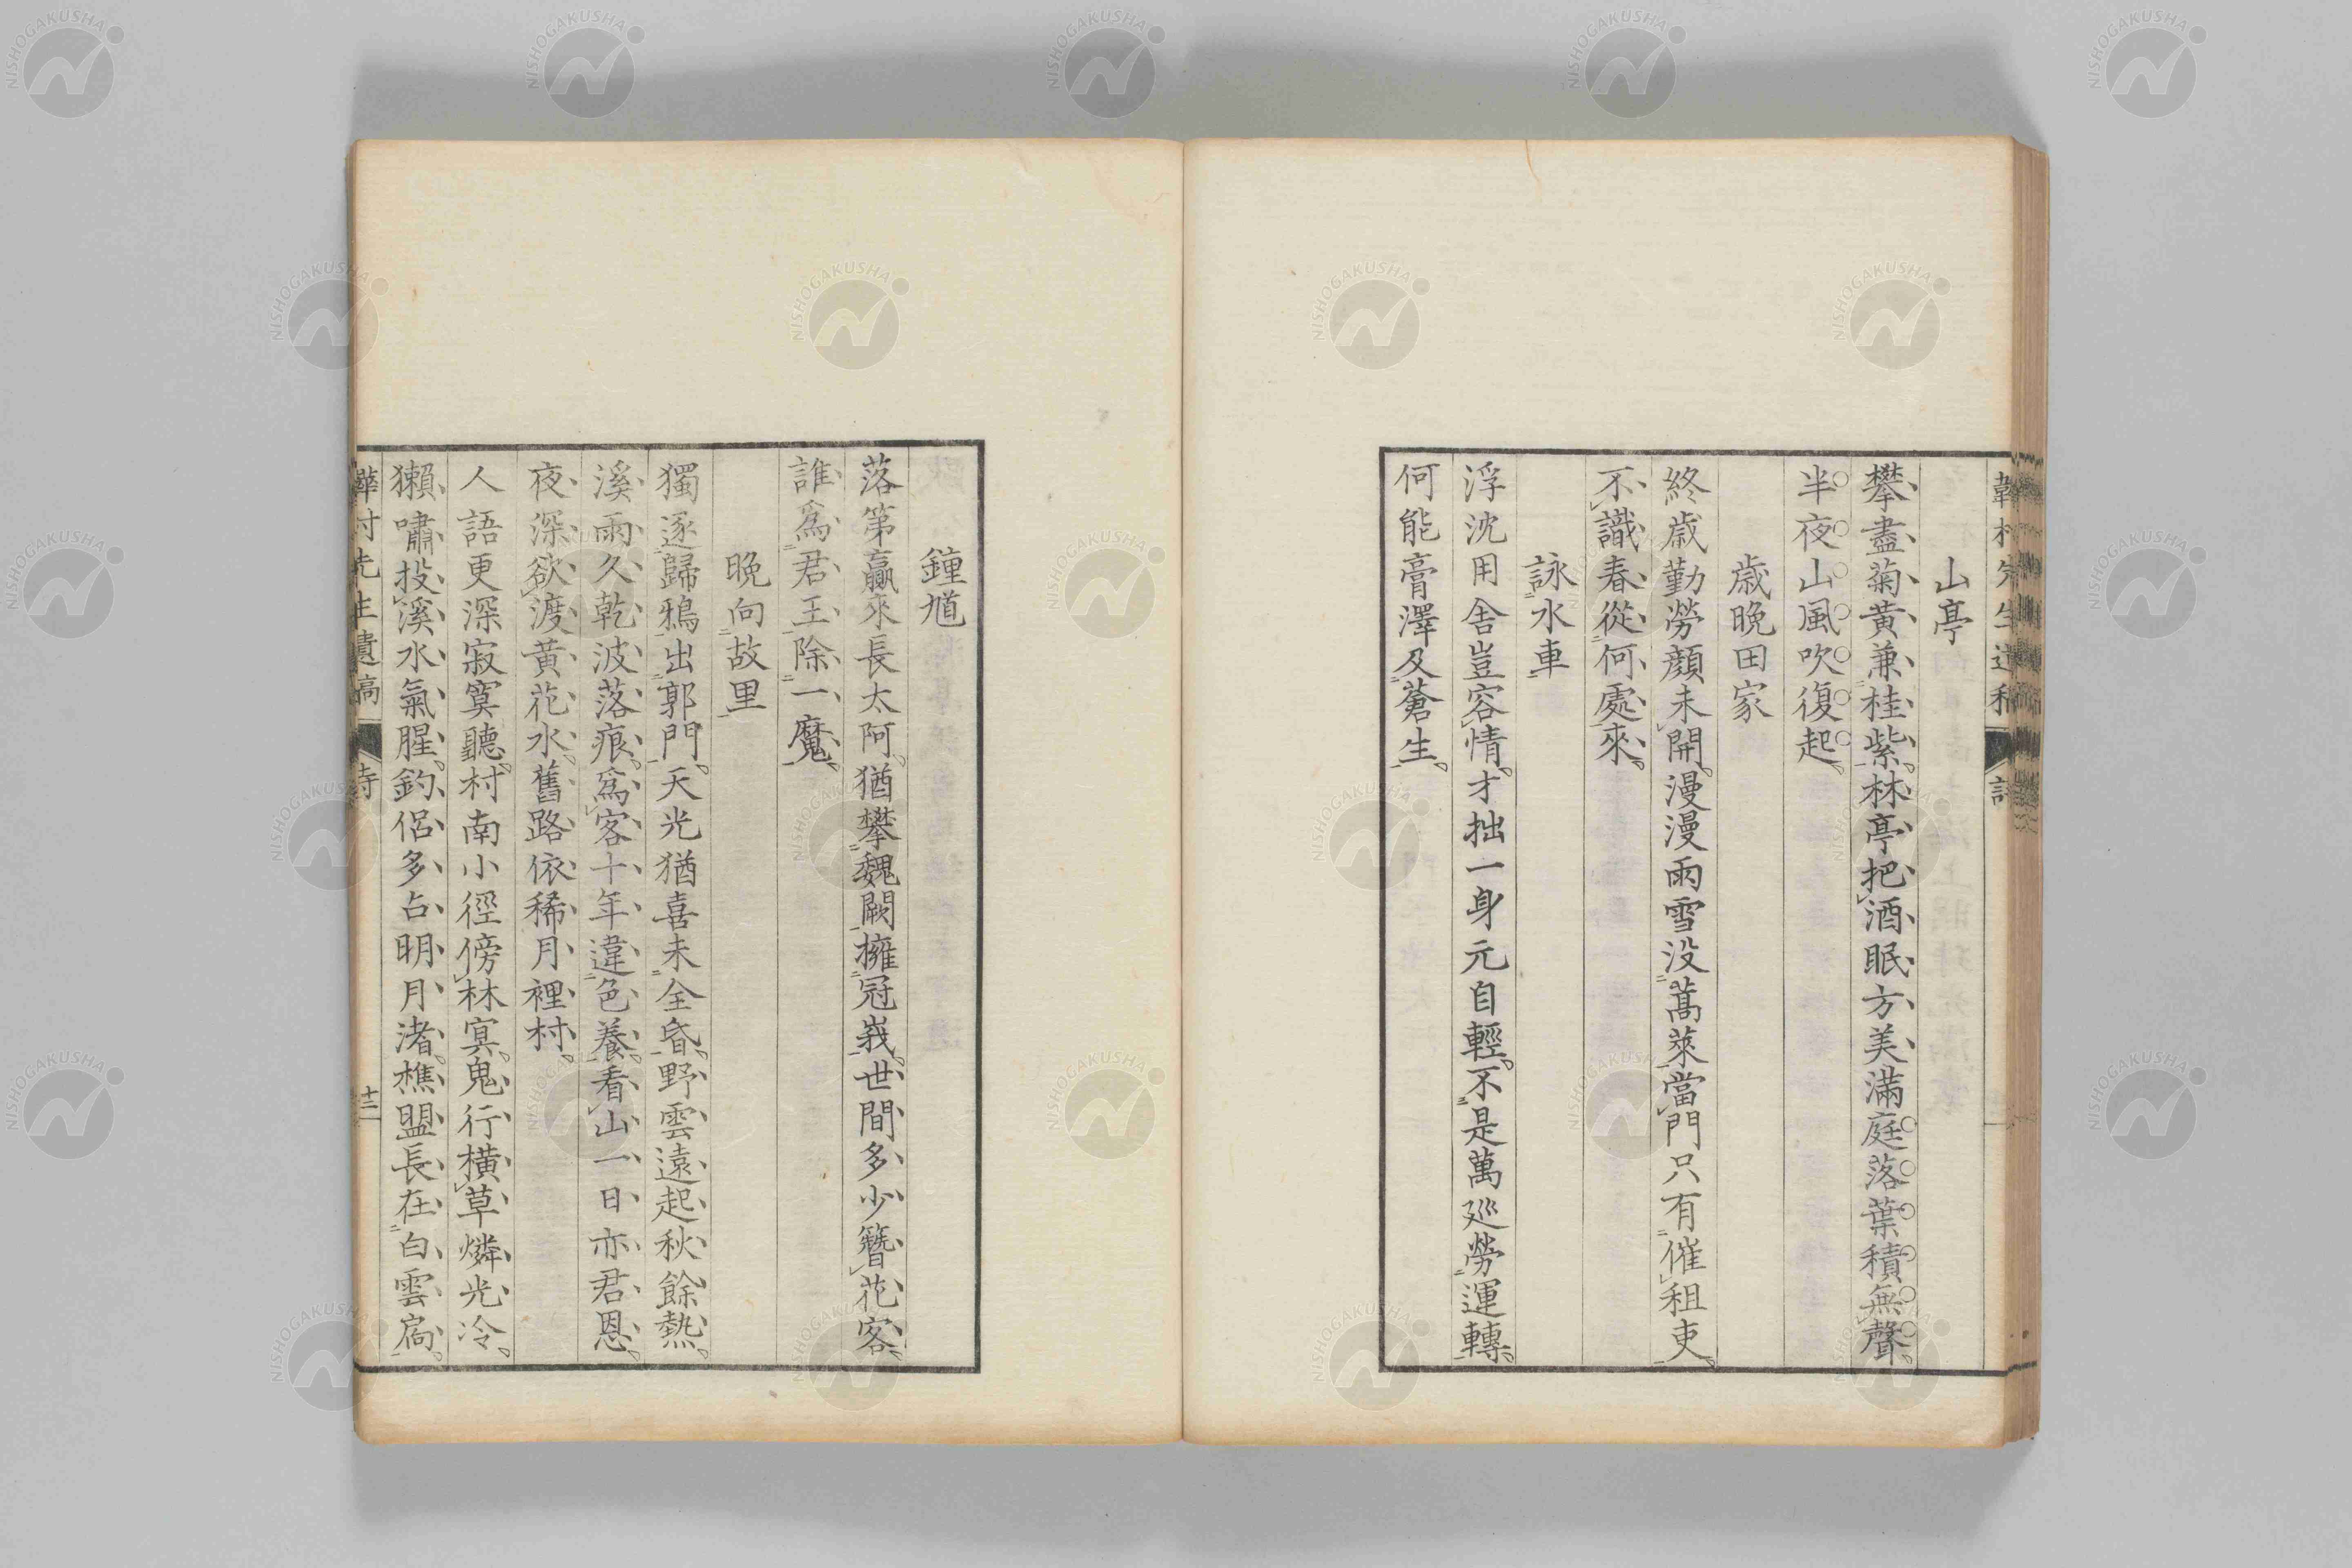 山亭
攀盡菊黄兼桂紫林亭把酒眠方美滿庭落葉積無聲
半夜山風吹復起
歳晩田家
終歳勤勞顔未開漫漫雨雪没蒿萊當門只有催租吏
不識春從何處來
詠水車
浮沈用舍豈容情才拙一身元自輕不是萬巡勞運轉
何能膏澤及蒼生
鍾馗
落第贏來長太阿猶攀魏闕擁冠峩世間多少簪花客
誰爲君王除一魔
晩向故里
獨逐歸鴉出郭門天光猶喜未全昏野雲遠起秋餘熱
溪雨久乾波落痕爲客十年違色養看山一日亦君恩
夜深欲渡黄花水舊路依稀月裡村
人語更深寂寞聽村南小徑傍林冥鬼行横草燐光冷
獺嘯投溪水氣腥釣侶多占明月渚樵盟長在白雲扃
村先生遺稿
十二
NISHOGAKUSHA